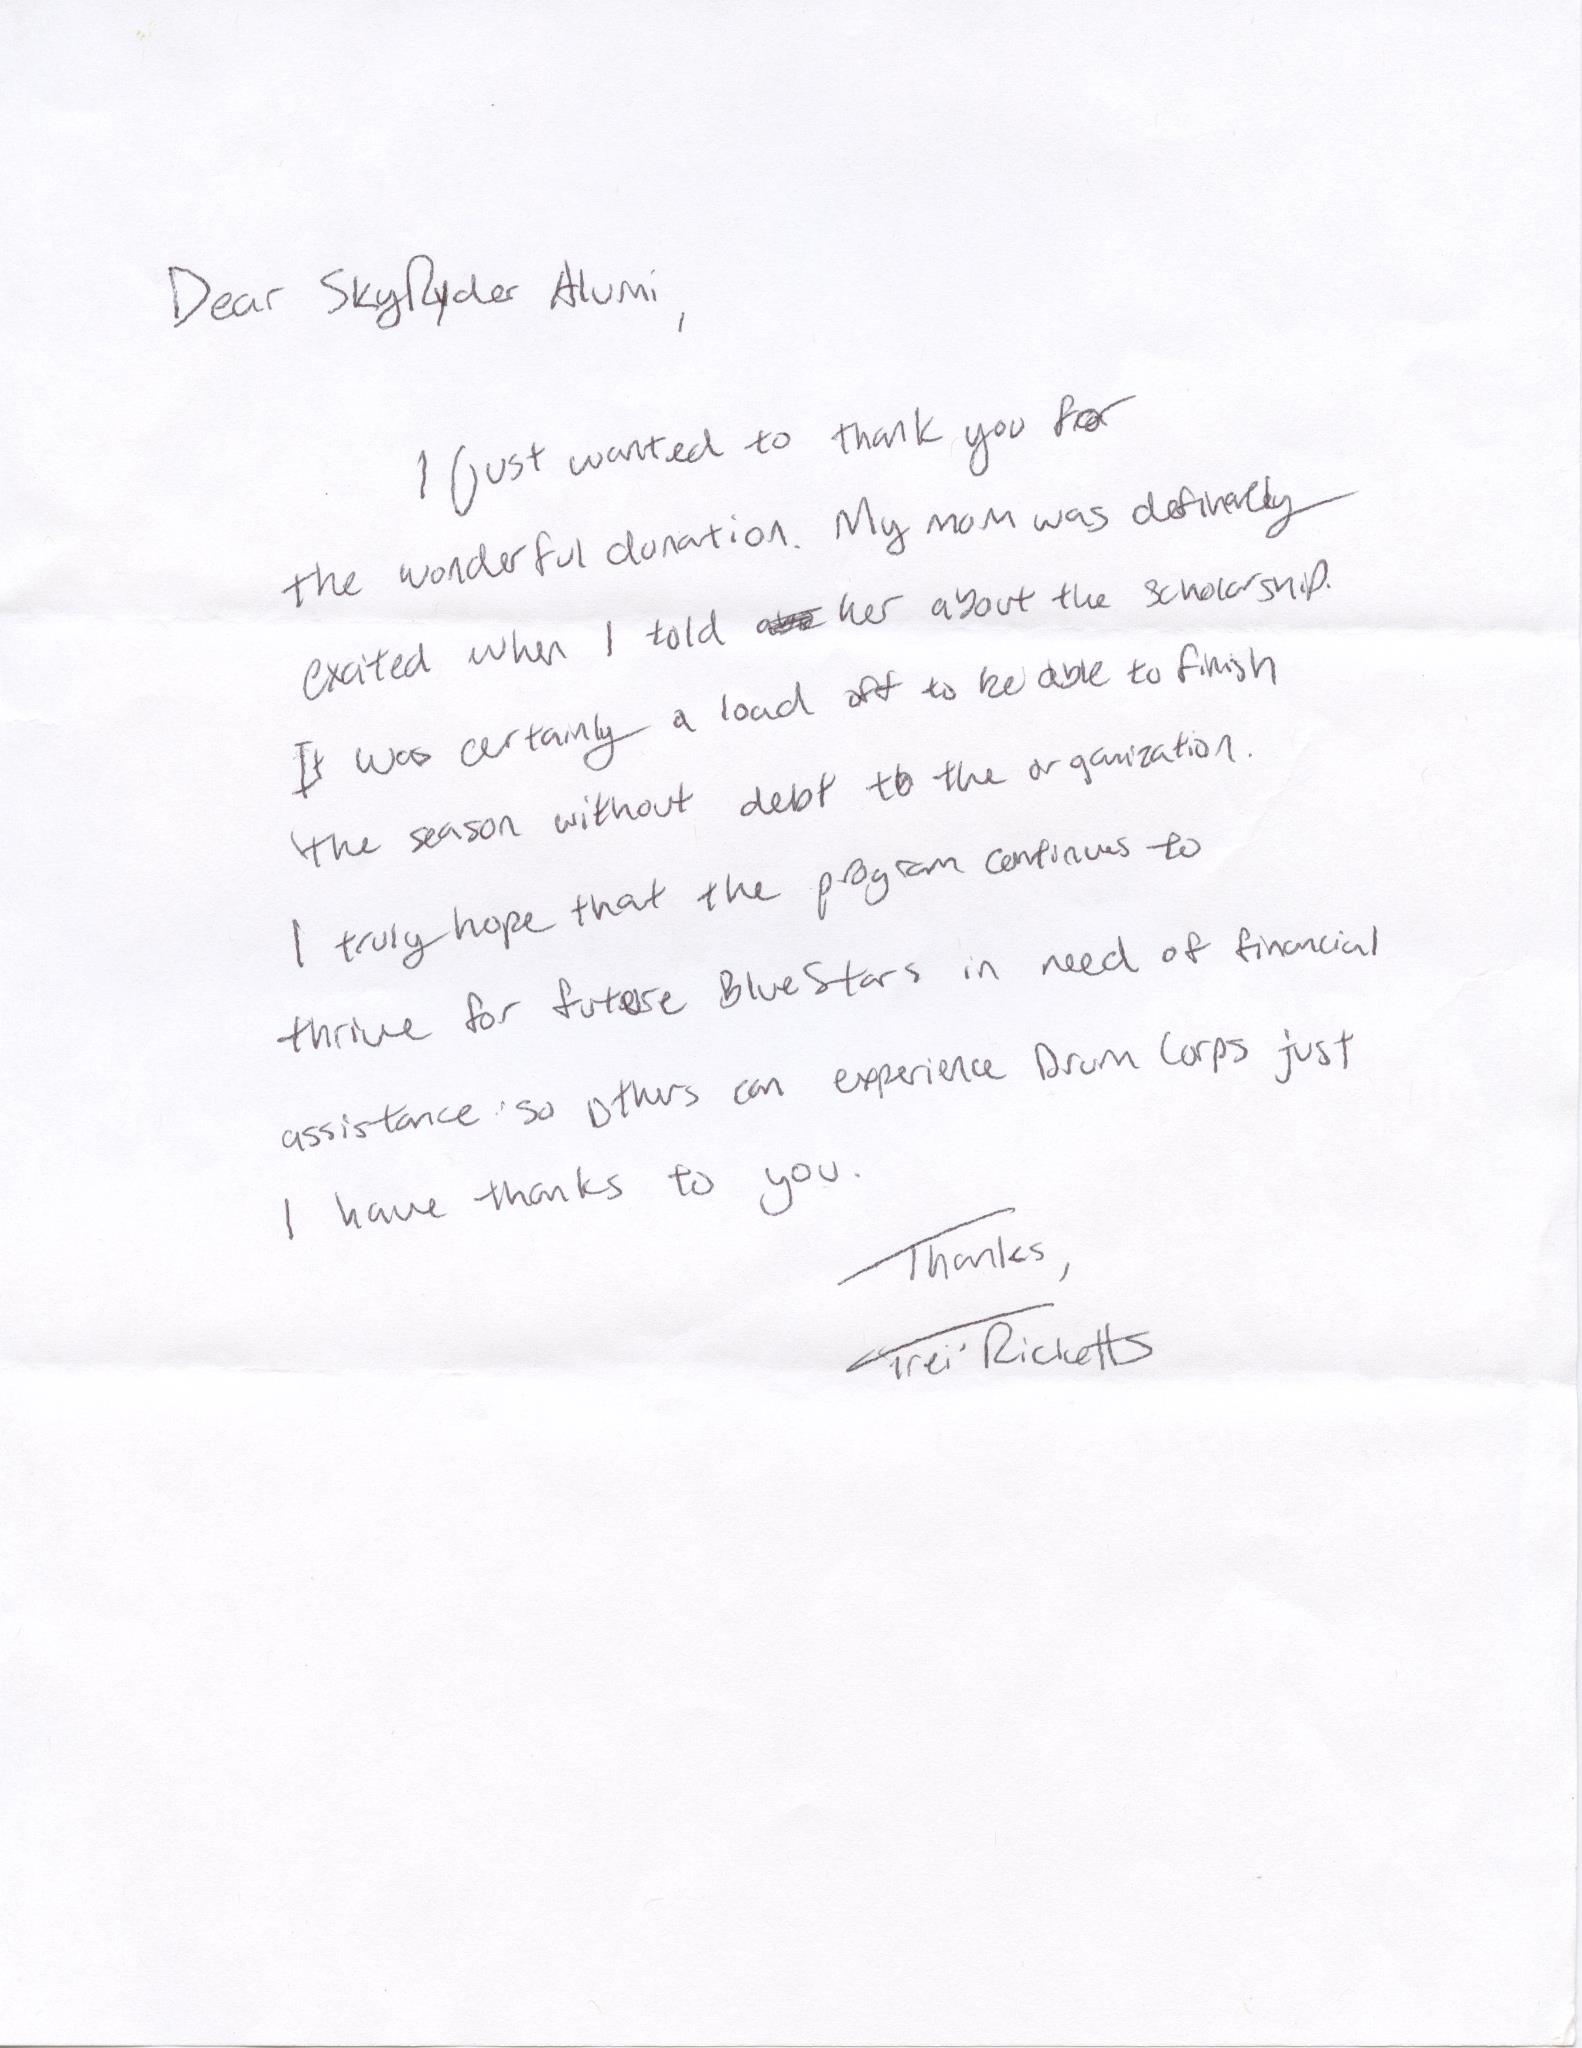 Dear SkyRyder Alumi,
I just wanted to thank you for
the wonderful donation. My mom was definetly
excited when I told her about the scholarship.
It was certainly a load off to be able to finish
the season without debt to the organization.
I truly hope that the program continues to
thrive for future BlueStars in need of financial
assistance so others can experience Drum Corps just
I have thanks to you.
Thanks,
Trei Ricketts